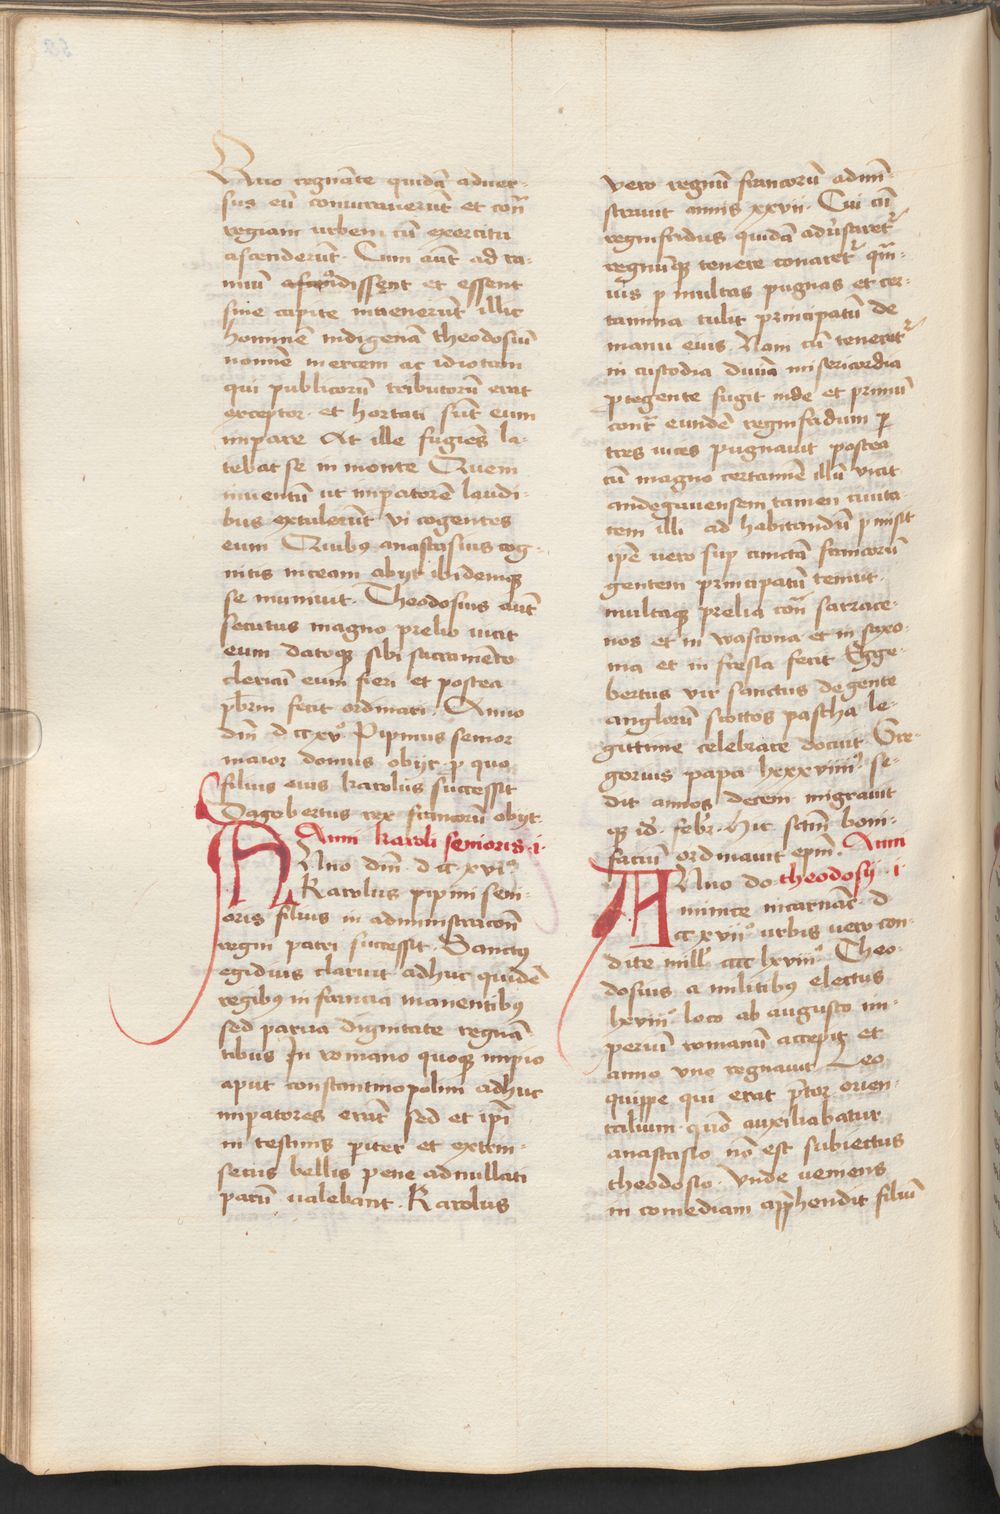 Quo regnāte quidā aduer-
sus eū coniurauerūt et cont̄
regiam urbem cū exercitu
ascenderūt. Cum aūt ad ra-
nuū ascendissent et essent
sine capite inuenerūt illic
hominē indigenā theodosiū
nomīe mercem ac idiotam
qui publicorū tributorū erat
exceptor. et hortati sūt eum
impare At ille fugiēs la-
tebat se in monte Quem
inuentū ut impatorē laudi-
bus extulerūt vi cogentes
eum Quibꝯ anastasius cog-
nitis niceam abijt ibidemqꝫ
se muniuit. Theodosius aūt
secutus magno prelio uicit
eum datoqꝫ sibi sacramēto
clericū eum fieri et postea
pb̄rm fecit ordinari. Anno
dn̄i dccxvº Pipinus senior
maior domus obijt. p quo
filius eius karolus successit
Dagobertus rex francorū obijt
Anni karoli senioris .i.
Anno dn̄i .dcc.xviº
Karolus pipini seni-
oris filius in administracōn̄
regni patri successit. Sanctꝯ
egidius claruit. adhuc quidē
regibꝯ in francia manentibꝯ
sed parua dignitate regnā
tibus In romano quoqꝫ impio
aput constantinopolim adhuc
impatores erāt sed et ip̄i
in testinis piter et extrin-
secus bellis pene adnullati
parū ualebant. Karolus
vero regnū francorū admī-
strauit annis xxvii. Cui cū
reginfridus quidā adūsaret᷑
regnūqꝫ tenere conaret᷑ qm̄-
uis p multas pugnas et cer-
tamina tulit principatū de
manu eius. Nam cū teneret᷑
in custodia diuīa misericordia
ptegente fugit inde et primū
cont̄ eundē reginfridum p
tres uices pugnauit postea
cū magno certamīe illū vicit
andegauensem tamen ciuita-
tem illi ad habitandū pmisit
ip̄e uero sup cunctā francorū
gentem principatū tenuit.
multaqꝫ prelia cont̄ sarrace-
nos et in wascona et in saxo-
nia et in fresia fecit Egge-
bertus vir sanctus de gente
anglorū scottos pascha le-
gittime celebrare docuit Gre-
gorius papa lxxxviiiiº. se-
dit annos decem. migrauit
qꝫ id᷑. febr᷑. hic sctm̄ boni-
faciū ordinauit ep̄m. Anni
theodosij .i.
Anno do
minice incarnac̄. d
cc xviiº urbis uero con-
dite mill᷑ cccc lxviiiº. Theo-
dosius a militibꝯ electus
lxviiiº loco ab augusto im-
perium romanū accepit et
anno vno regnauit Leo
quippe qui erat p̄tor orien-
talium. quō auxiliabatur
anastasio nō est subiectus
theodosio. vnde ueniens
in comediam app̄hendit filiū